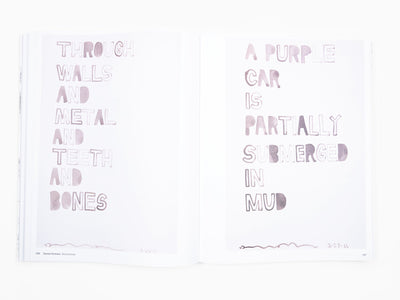 THROUGH
WALLS
AND
METAL
AND
TEETH
AND
BONES
A PURPLE
CAR
IS
PARTIALLY
SUBMERGED
IN
MUD